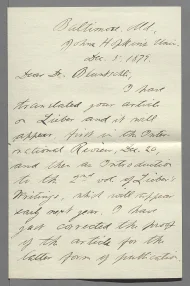 Baltimore, Md.
Johns Hopkins Univ.
Dec. 5. 1879.
Dear Dr. Bluntschli,
I have
translated your article
on Lieber and it will
appear first in the Inter-
national Review, Dec. 20,
and then as Introduction
to the 2nd vol. of Lieber's
Writings, which will appear
early next year. I have
just corrected the proof
of the article for the
latter form of publication